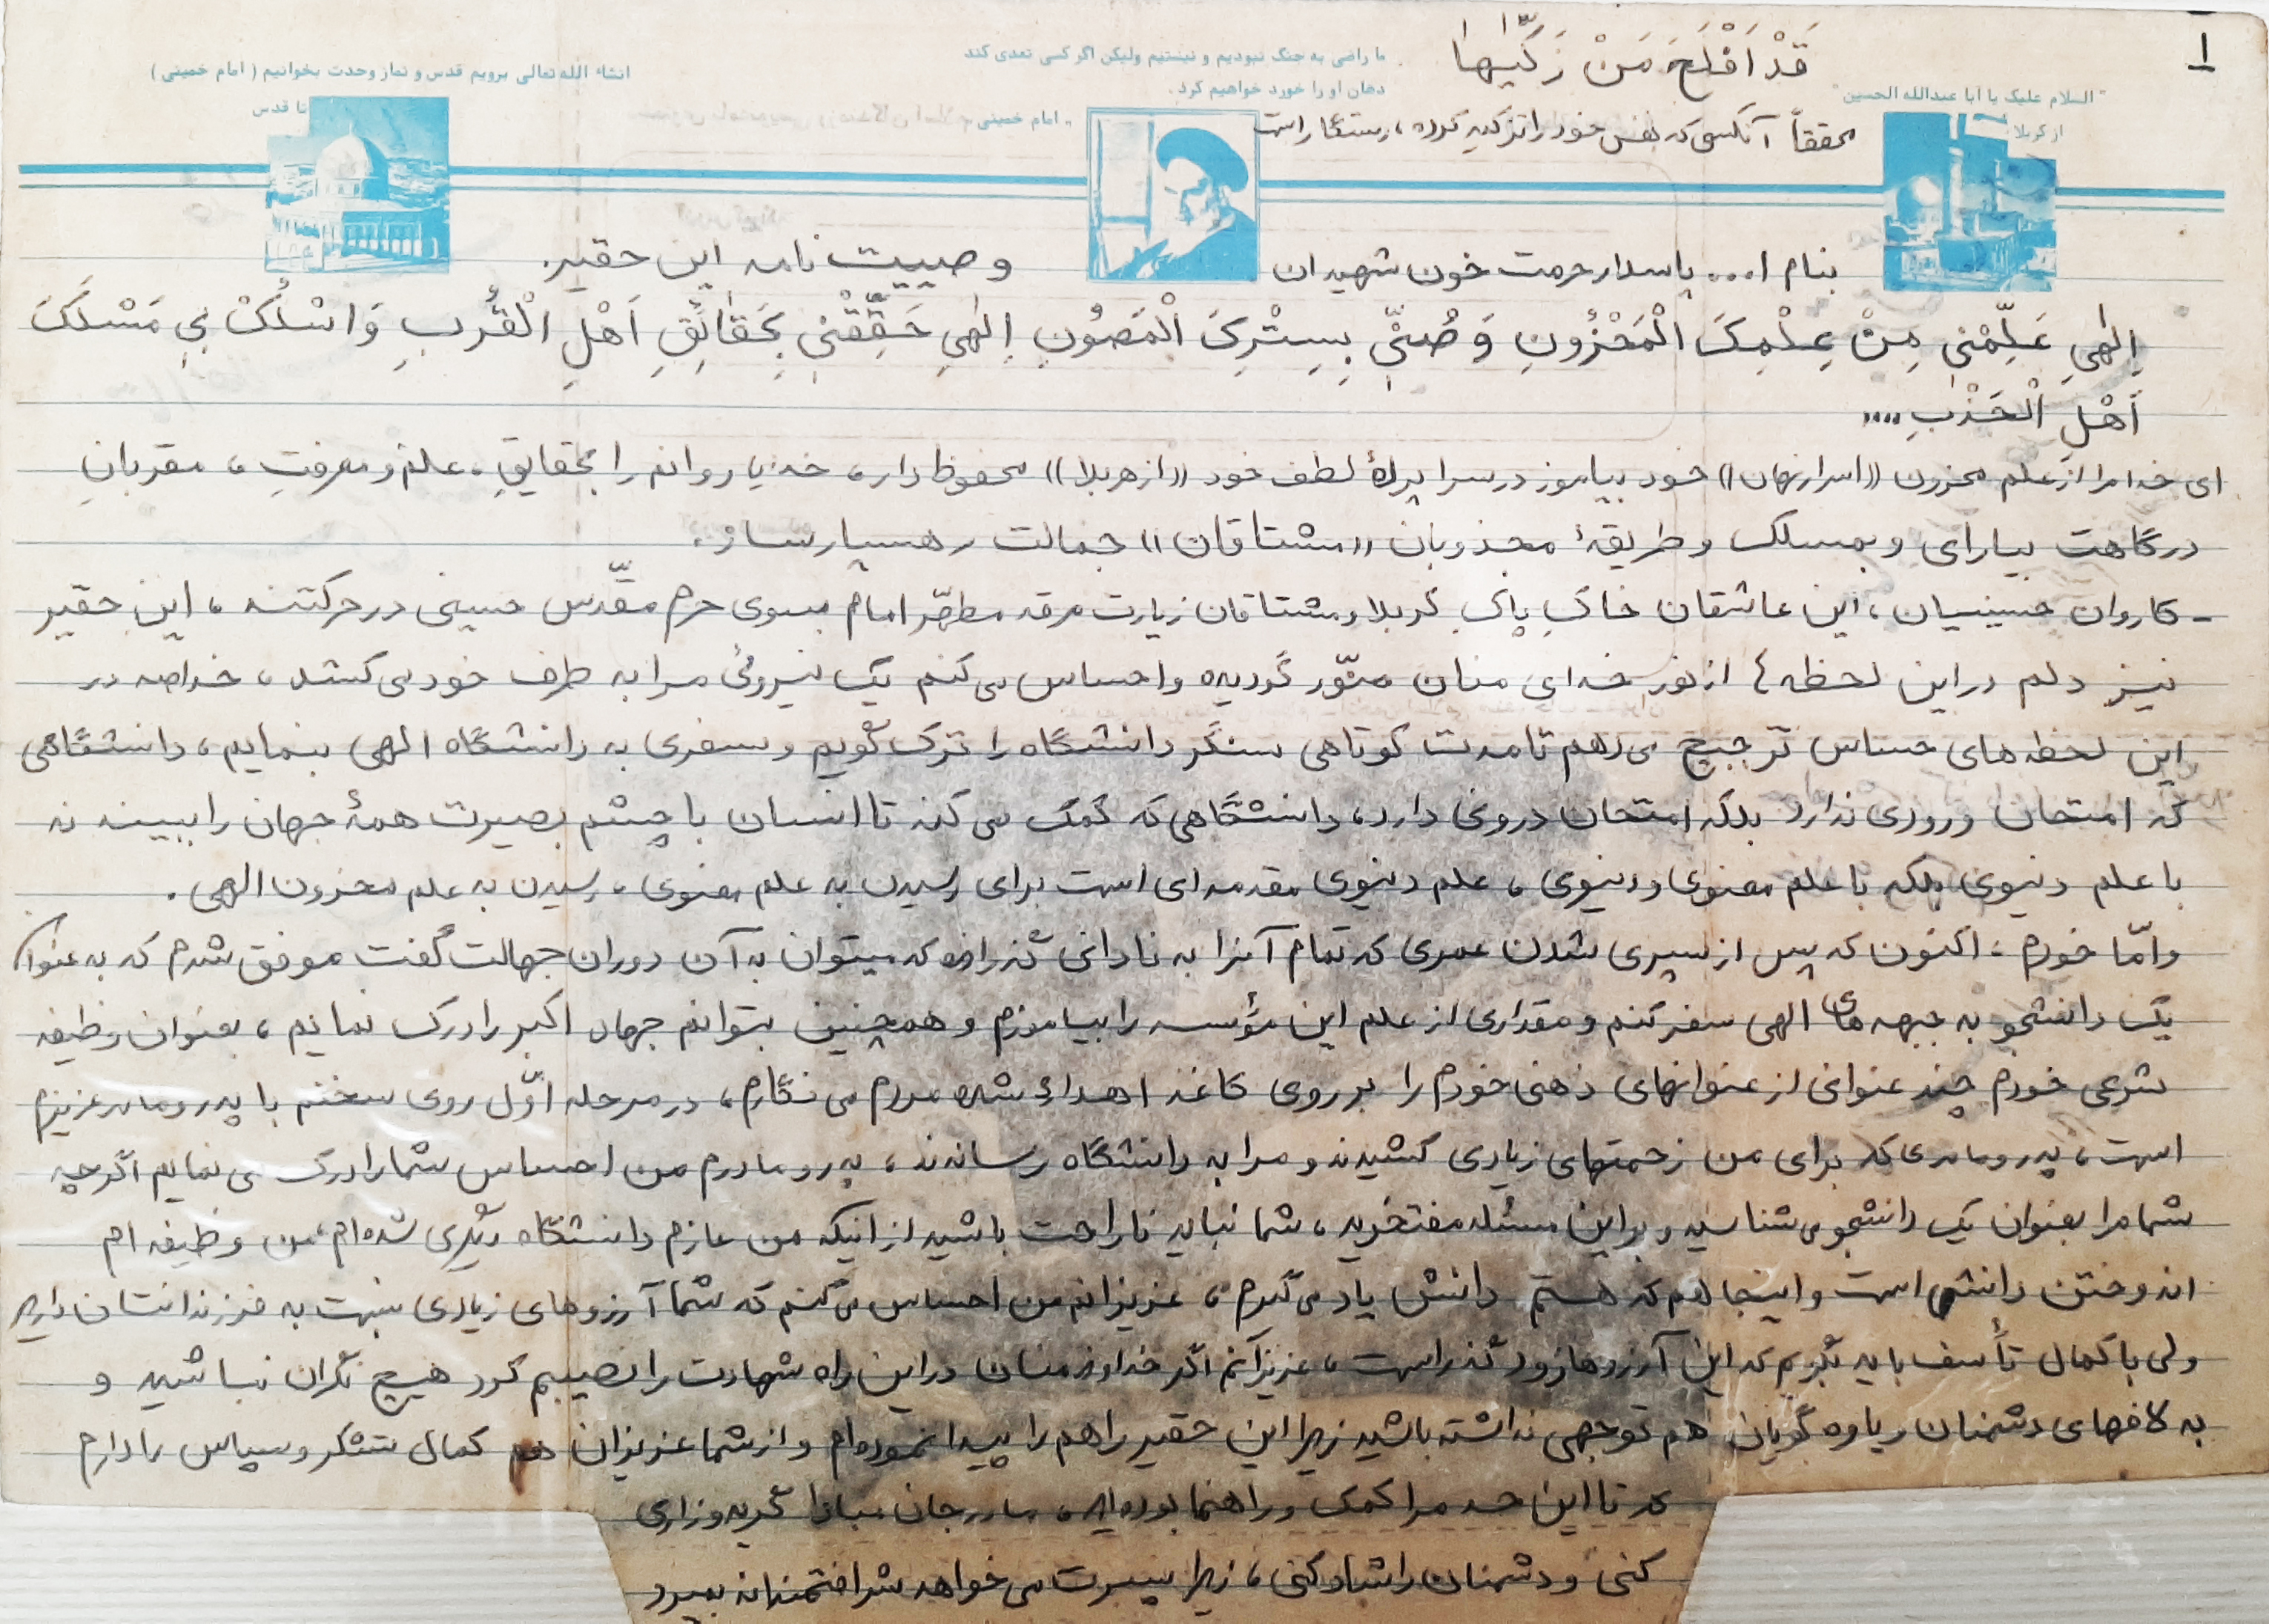 ۱
قَدْ اَفْلَحَ مَنْ زَكّیٰها
ما راضی به جنگ نبودیم و نیستیم ولیکن اگر کسی تعدی کند
دهان او را خورد خواهیم کرد.
"امام خمینی"
انشاء الله تعالی برویم قدس و نماز وحدت بخوانیم (امام خمینی)
تا قدس
"السلام علیک یا أبا عبدالله الحسین"
از کربلا
محققاً آنکسی که نفس خود را تزکیه کرده، رستگار است
بنام ا... پاسدار حرمت خون شهیدان وصییت نامه این حقیر.
اِلٰهي عَلِّمْني مِنْ عِلْمِكَ الْمَخْزُونِ وَ صُنّي بِسِتْرِكَ الْمَصُونِ اِلٰهي حَقِّقْني بِحَقائِقِ اَهْلِ الْقُربِ وَ اسْلُكْ بي مَسْلَكَ
اَهْلِ الْجَذْبِ....
ای خدا مرا از علم مخزون ((اسرار نهان)) خود بیاموز در سرا پردهٔ لطف خود ((از هر بلا)) محفوظ دار، خدایا روانم را بحقایقِ، علم و معرفتِ، مقربانِ
درگاهت بیارای و بمسلک و طریقهٔ مجذوبان ((مشتاقان)) جمالت رهسپار ساز.
- کاروان حسینیان، این عاشقان خاکِ پاکِ کربلا و مشتاقان زیارت مرقد مطهّر امام بسوی حرم مقدّس حسینی در حرکتند، این حقیر
نیز دلم در این لحظه ها از نور خدای منان منوّر گردیده و احساس می کنم یک نیروئی مرا به طرف خود می کشد، خداصه در
این لحظه های حساس ترجیح می دهم تا مدت کوتاهی سنگر دانشگاه را ترک گویم و سفری به دانشگاه الهی بنمایم، دانشگاهی
که امتحان ورودی ندارد بلکه امتحان درونی دارد، دانشگاهی که کمک می کند تا انسان با چشم بصیرت همهٔ جهان را ببیند نه
با علم دنیوی بلکه با علم معنوی و دنیوی، علم دنیوی مقدمه ای است برای رسیدن به علم معنوی، رسیدن به علم مخزون الهی.
و امّا خودم: اکنون که پس از سپری شدن عمری که تمام آنرا به نادانی گذرانده که میتوان به آن دوران جهالت گفت موفق شدم که به عنوان
یک دانشجو به جبهه های الهی سفر کنم و مقداری از علم این مؤسسه را بیاموزم و همچنین بتوانم جهاد اکبر را درک نمایم، بعنوان وظیفه
شرعی خودم چند عنوانی از عنوانهای ذهنی خودم را بر روی کاغذ اهداء شده مردم می نگارم، در مرحله اوّل روی سخنم با پدر و مادر عزیزم
است، پدر و مادری که برای من زحمتهای زیادی کشیدند و مرا به دانشگاه رساندند، پدر و مادرم من احساس شما را درک می نمایم اگر چه
شما مرا بعنوان یک دانشجو می شناسید و بر این مسئله مفتخرید، شما نباید ناراحت باشید از اینکه من عازم دانشگاه دیگری شده ام، من وظیفه ام
اندوختن دانش است و اینجا هم که هستم دانش یاد می گیرم، عزیزانم من احساس می کنم که شما آرزوهای زیادی نسبت به فرزندانتان دارید
ولی با کمال تأسف باید بگویم که این آرزوها زود گذر است، عزیزانم اگر خداوند منان در این راه شهادت را نصیبم کرد هیچ نگران نباشید و
به لافهای دشمنان و یاوه گویان هم توجهی نداشته باشید زیرا این حقیر راهم را پیدا نموده ام و از شما عزیزان هم کمال تشکر و سپاس را دارم
که تا این حد مرا کمک و راهنما بوده اید، مادر جان مبادا گریه و زاری
کنی و دشمنان را شاد کنی، زیرا پسرت می خواهد شرافتمندانه بمیرد